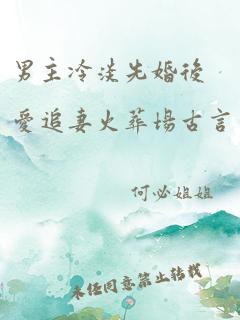 男主冷淡先婚後
愛追妻火葬場古言
何必姐姐
未经同意禁止转载